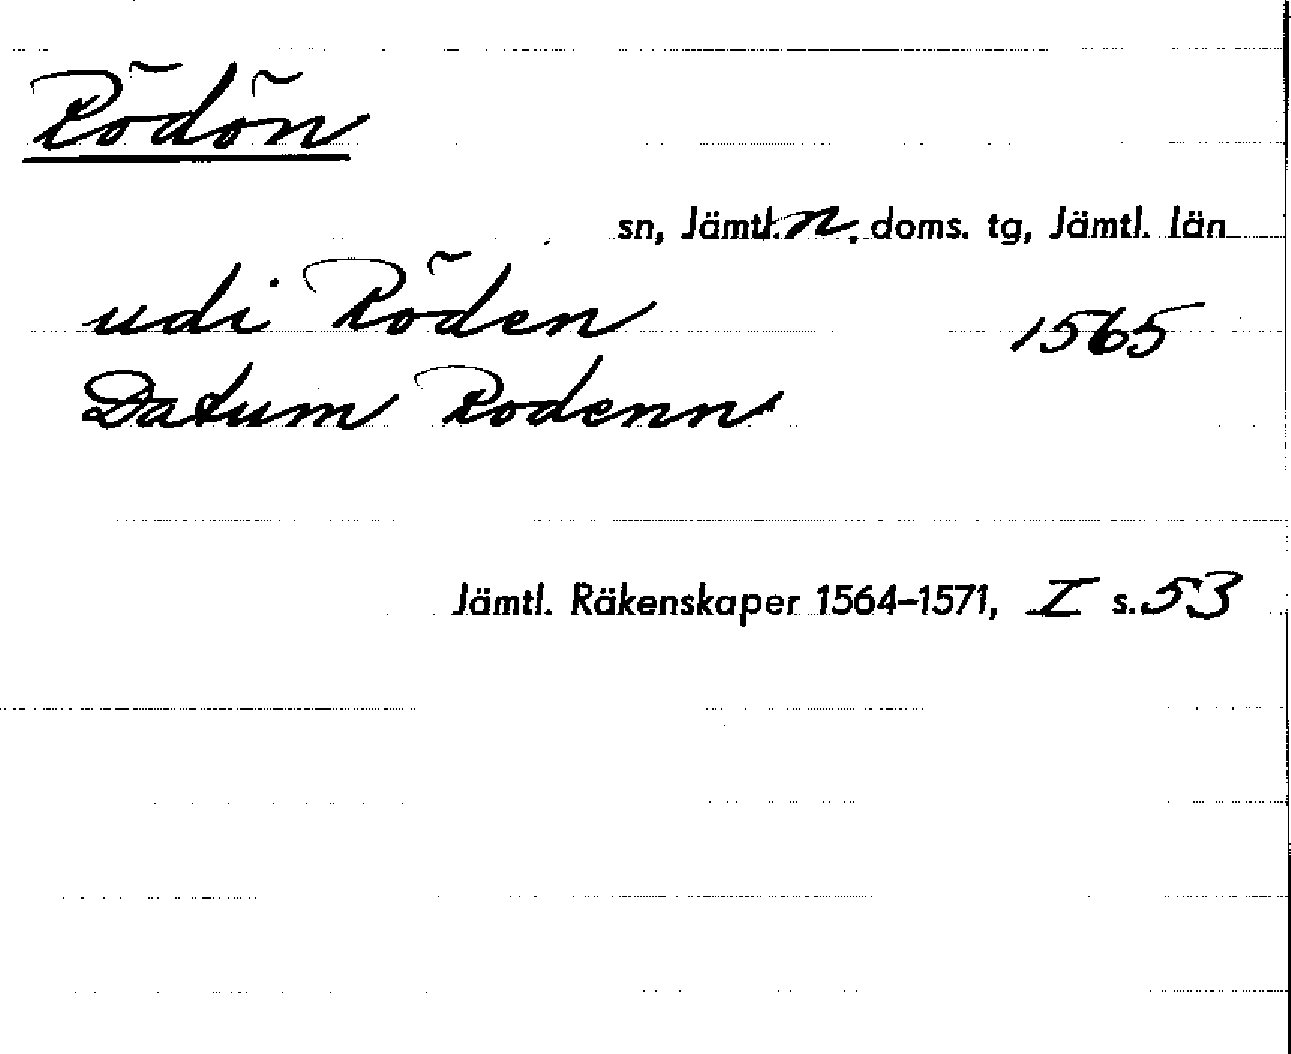 Rödön
sn, Jämtl. n. doms. tg, Jämtl. län
udi Röden 1565
Datum Rodenn
Jämtl. Räkenskaper 1564-1571, I s. 53